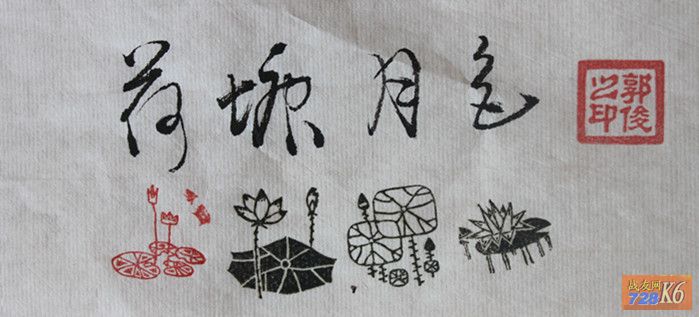 荷塘月色
郭俊之印
战友网
728K6